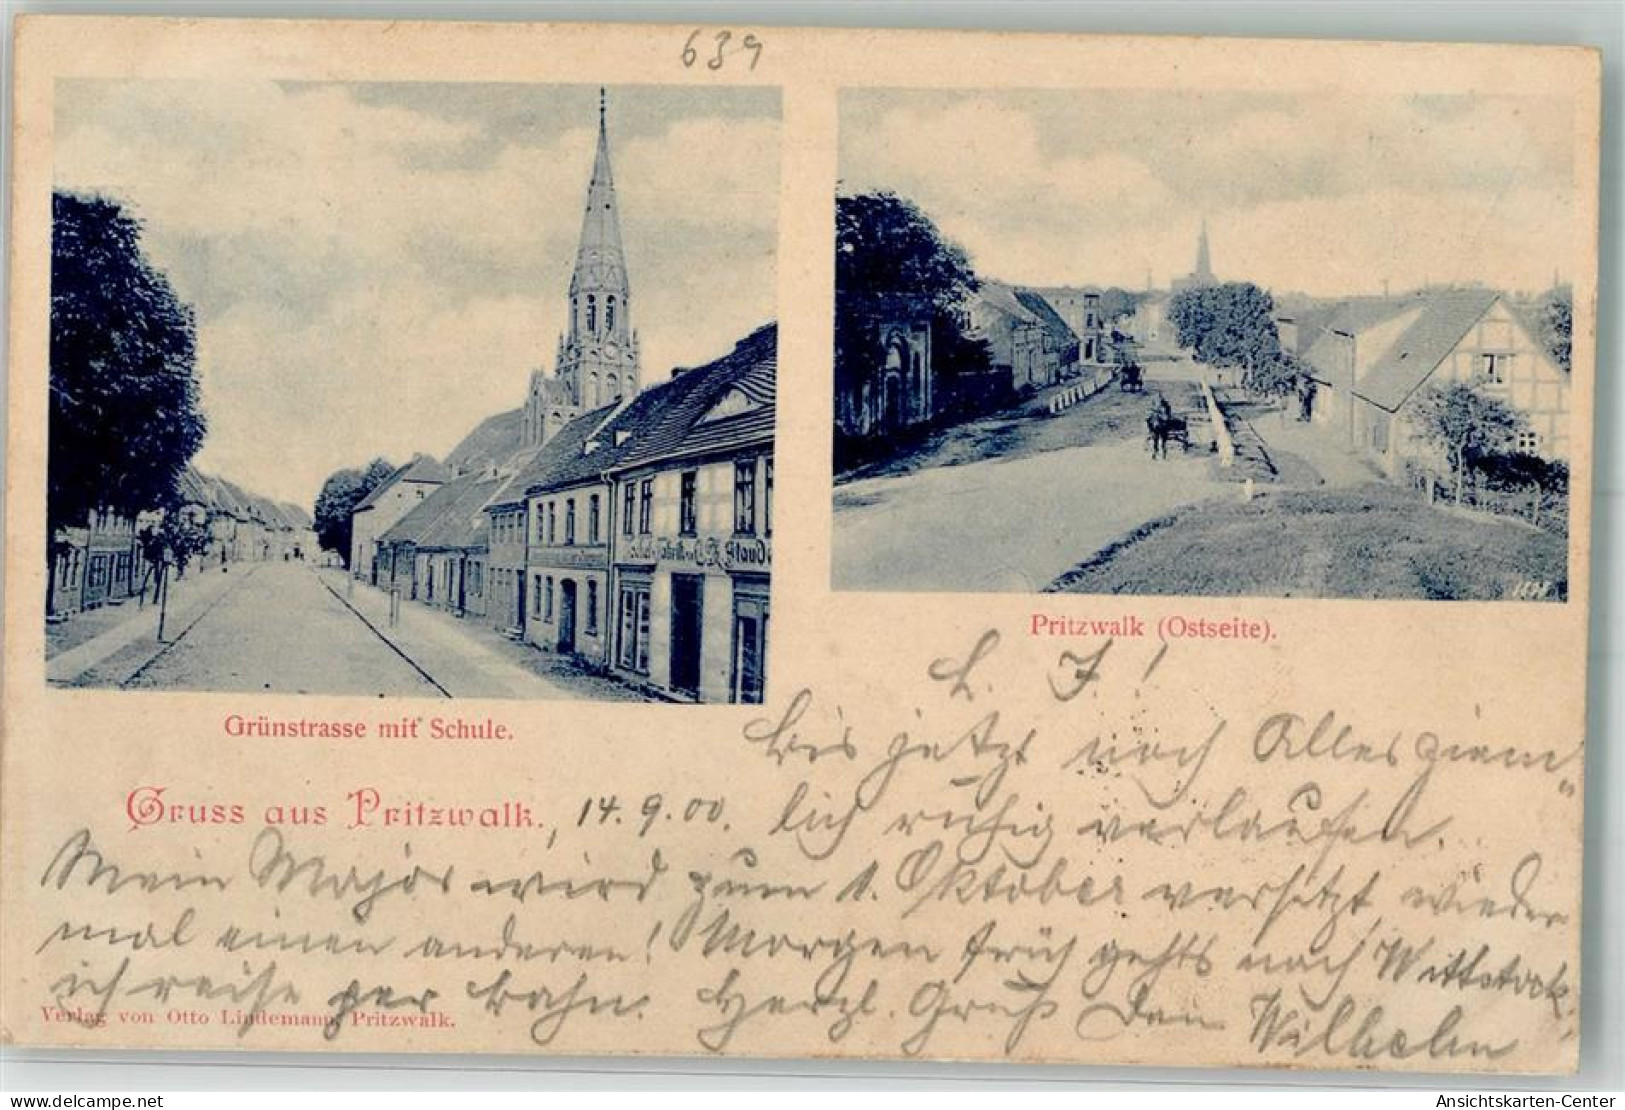 639
Fabrik v. C. R. Staude
1898
Grünstrasse mit Schule.
Pritzwalk (Ostseite).
Gruss aus Pritzwalk., 14. 9. 00.
L. J.!
Bis jetzt noch Alles ziem"
lich ruhig verlaufen.
Mein Major wird zum 1. Oktober versetzt, wieder
mal einen anderen! Morgen früh gehts nach Wittstock,
ich reise per Bahn. Herzl. Gruß Dein Wilhelm
Verlag von Otto Lindemann, Pritzwalk.
oldthing.de
Ansichtskarten-Center